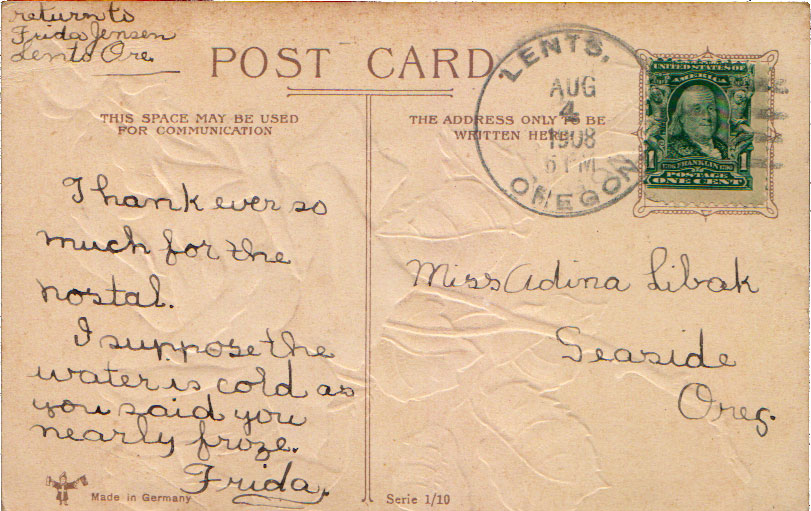 return to
Frida Jensen
Lents Ore.
POST CARD
THIS SPACE MAY BE USED
FOR COMMUNICATION
THE ADDRESS ONLY TO BE
WRITTEN HERE
LENTS,
AUG
4
1908
6 PM
OREGON
UNITED STATES OF
AMERICA
1 FRANKLIN 1
POSTAGE
ONE CENT
Thank ever so
much for the
postal.
I suppose the
water is cold as
you said you
nearly froze.
Frida.
Miss Adina Libak
Seaside
Oreg.
Made in Germany
Serie 1/10